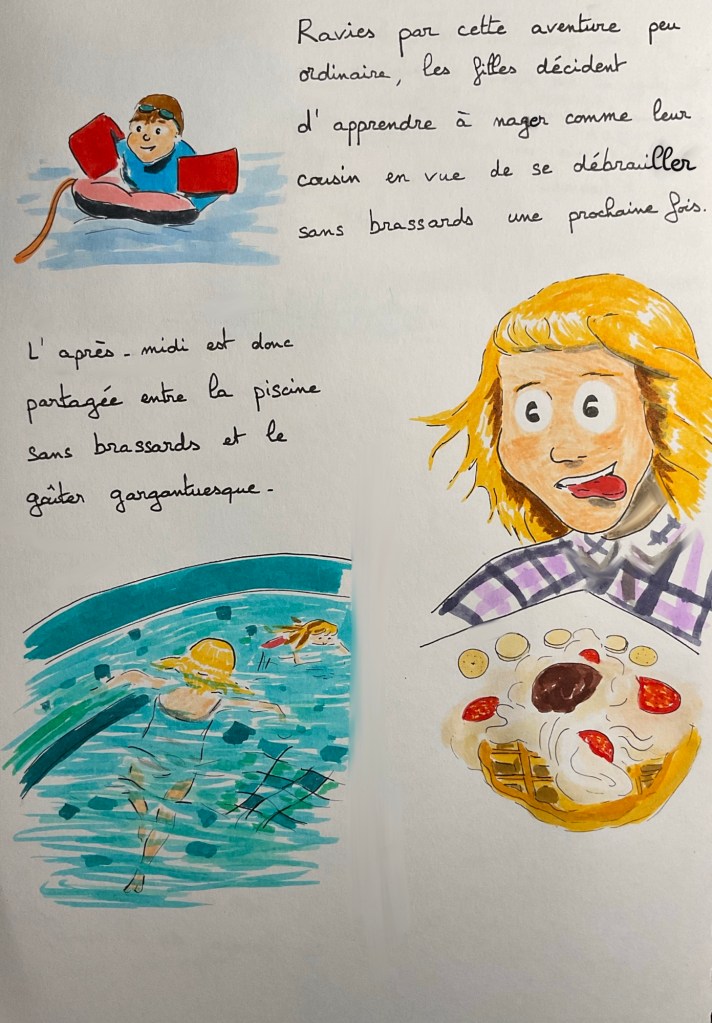 Ravies par cette aventure peu
ordinaire, les filles décident
d'apprendre à nager comme leur
cousin en vue de se débrailler
sans brassards une prochaine fois.
L'après-midi est donc
partagée entre la piscine
sans brassards et le
goûter gargantuesque.